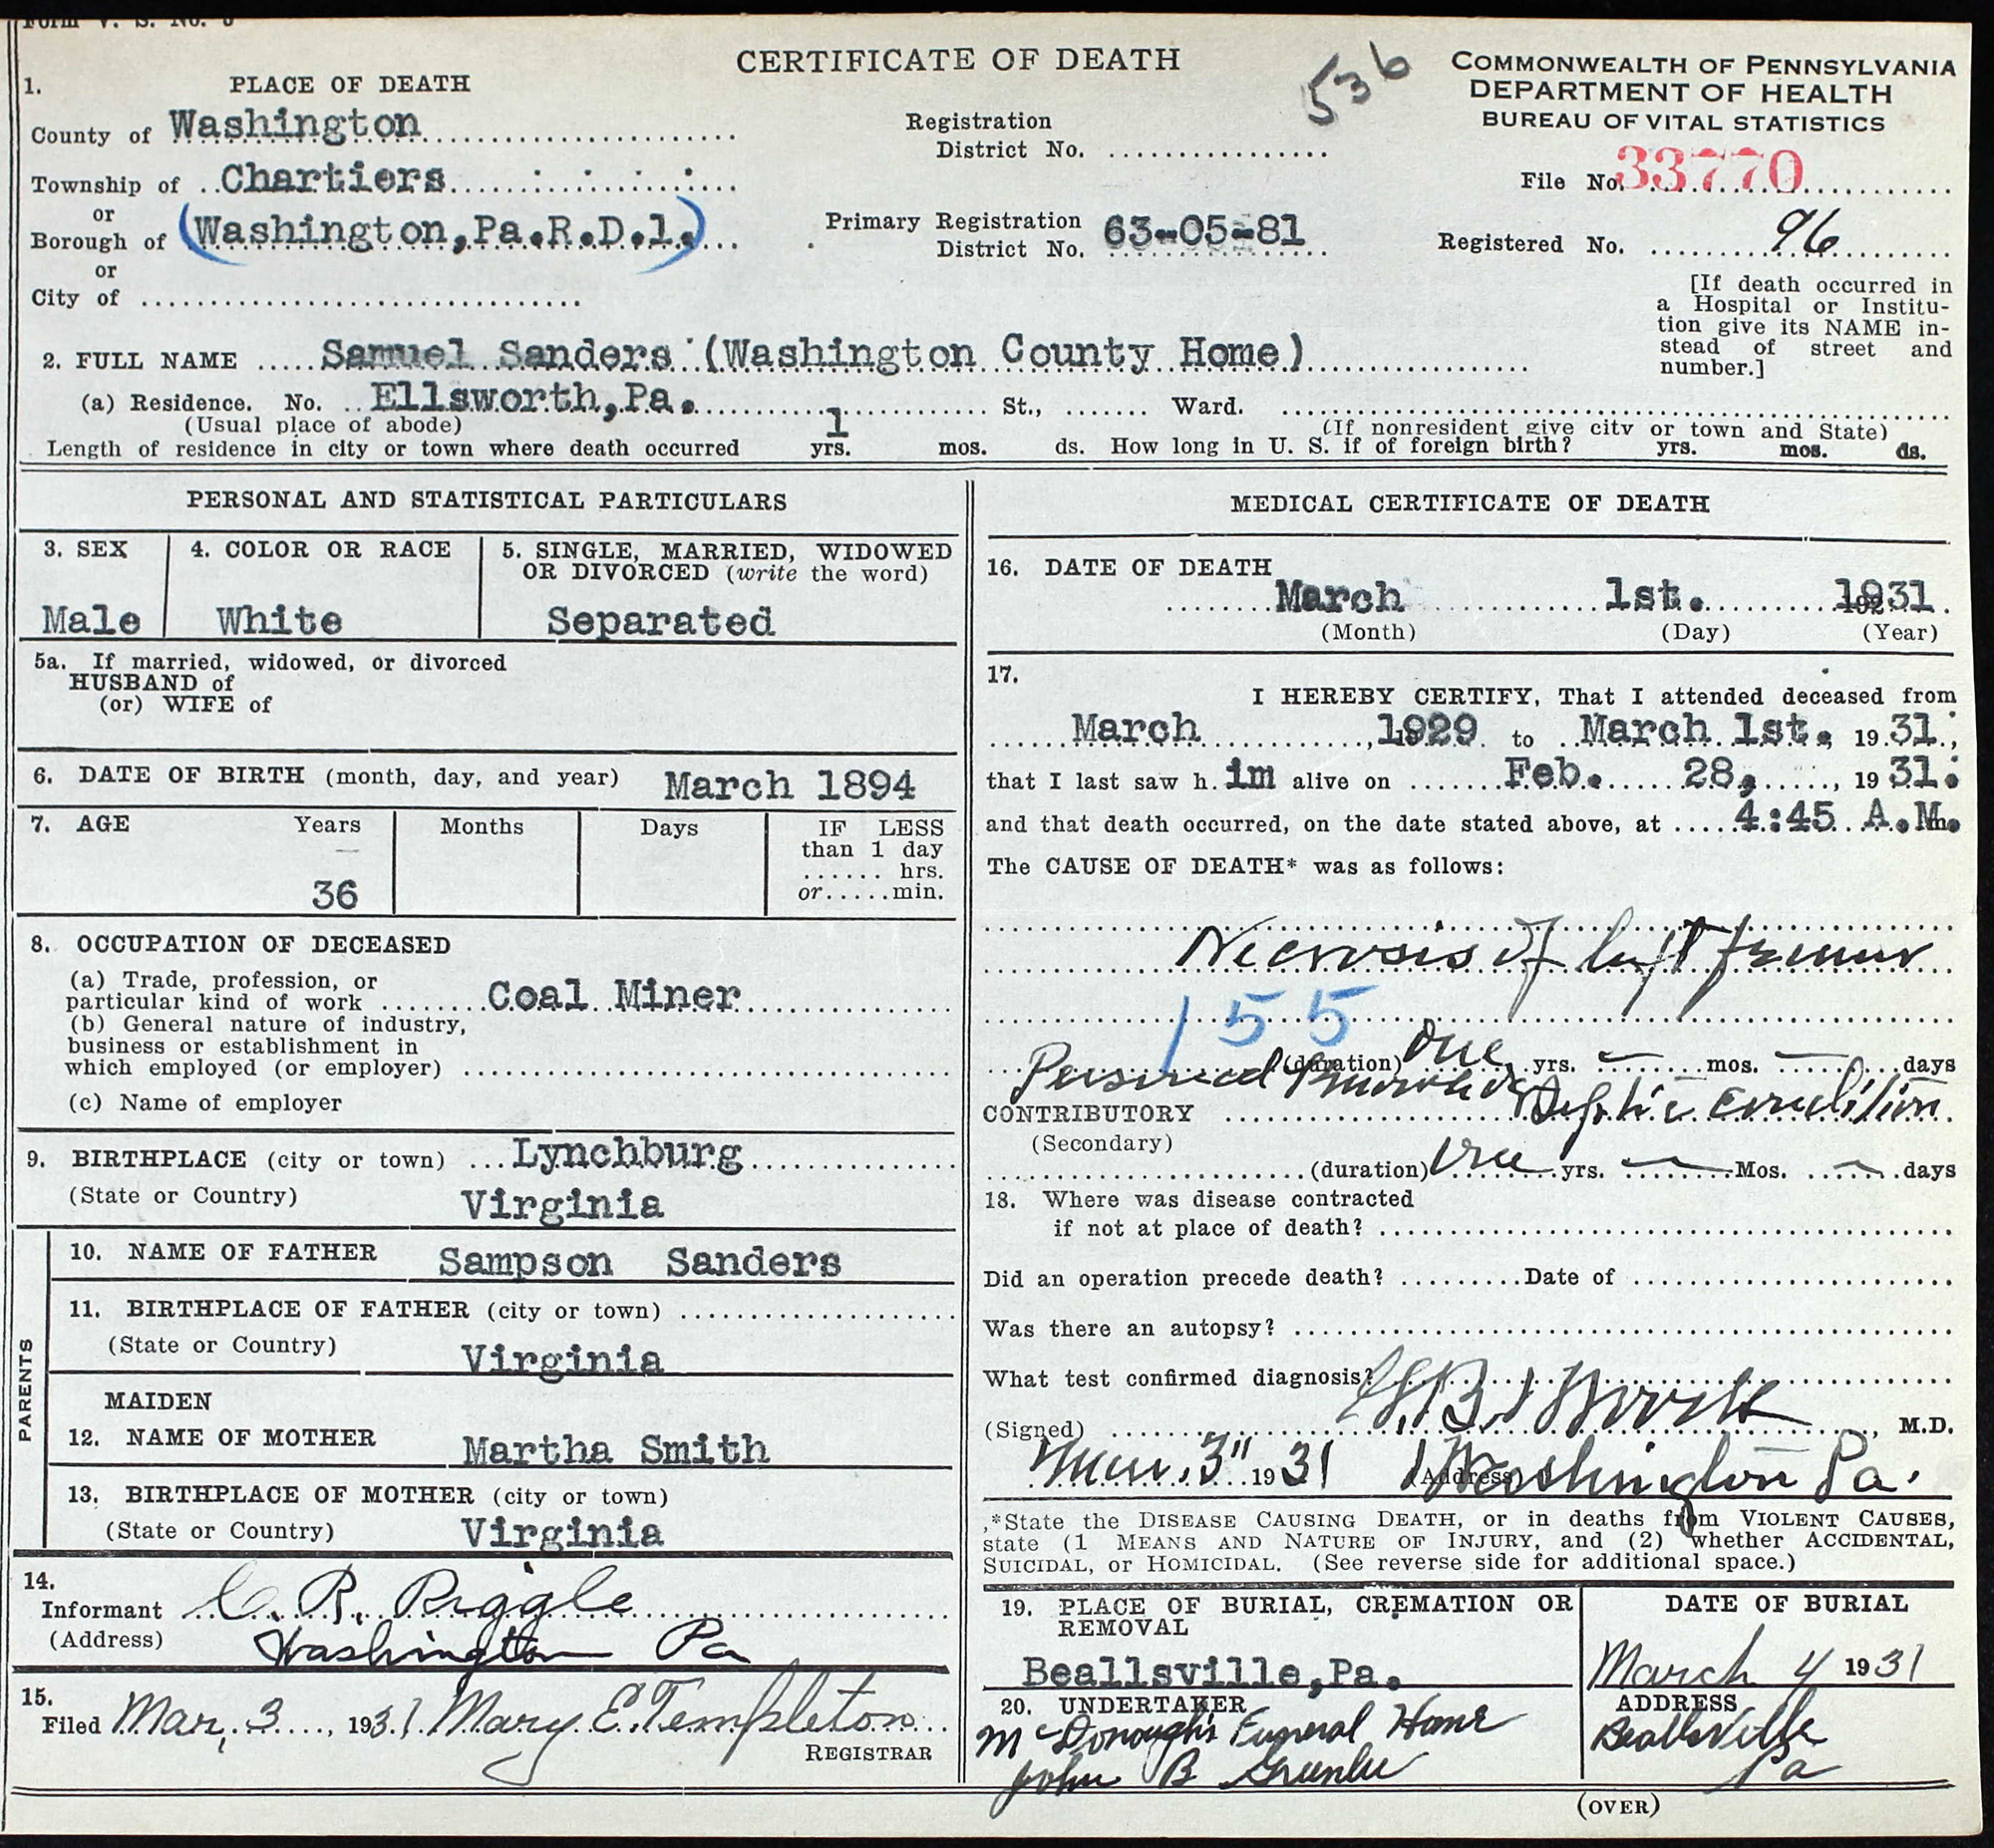 Form V. S. No. 5
CERTIFICATE OF DEATH
536
COMMONWEALTH OF PENNSYLVANIA
DEPARTMENT OF HEALTH
BUREAU OF VITAL STATISTICS
1. PLACE OF DEATH
County of Washington
Registration District No.
Township of Chartiers
File No. 33770
or
Borough of (Washington, Pa. R.D.1.)
Primary Registration District No. 63-05-81
Registered No. 96
or
City of
[If death occurred in a Hospital or Institution give its NAME instead of street and number.]
2. FULL NAME Samuel Sanders (Washington County Home)
(a) Residence. No. Ellsworth, Pa. St., Ward.
(Usual place of abode) (If nonresident give city or town and State)
Length of residence in city or town where death occurred 1 yrs. mos. ds. How long in U. S. if of foreign birth? yrs. mos. ds.
PERSONAL AND STATISTICAL PARTICULARS
3. SEX
Male
4. COLOR OR RACE
White
5. SINGLE, MARRIED, WIDOWED
OR DIVORCED (write the word)
Separated
5a. If married, widowed, or divorced
HUSBAND of
(or) WIFE of
6. DATE OF BIRTH (month, day, and year) March 1894
7. AGE Years Months Days IF LESS
than 1 day
hrs.
or min.
36
8. OCCUPATION OF DECEASED
(a) Trade, profession, or
particular kind of work Coal Miner
(b) General nature of industry,
business or establishment in
which employed (or employer)
(c) Name of employer
9. BIRTHPLACE (city or town) Lynchburg
(State or Country) Virginia
PARENTS
10. NAME OF FATHER Sampson Sanders
11. BIRTHPLACE OF FATHER (city or town)
(State or Country) Virginia
MAIDEN
12. NAME OF MOTHER Martha Smith
13. BIRTHPLACE OF MOTHER (city or town)
(State or Country) Virginia
14.
Informant C. R. Riggle
(Address) Washington Pa
15.
Filed Mar, 3, 1931. Mary E. Templeton
REGISTRAR
MEDICAL CERTIFICATE OF DEATH
16. DATE OF DEATH
March 1st. 1931
(Month) (Day) (Year)
17.
I HEREBY CERTIFY, That I attended deceased from
March, 1929 to March 1st, 19 31,
that I last saw h im alive on Feb. 28, 19 31.
and that death occurred, on the date stated above, at 4:45 A.M.
The CAUSE OF DEATH* was as follows:
Necrosis of left femur
155
(duration) One yrs. – mos. – days
CONTRIBUTORY Septic Condition
(Secondary)
(duration) One yrs. – Mos. – days
18. Where was disease contracted
if not at place of death?
Did an operation precede death? Date of
Was there an autopsy?
What test confirmed diagnosis?
(Signed) , M.D.
3" 19 31 (Address) Washington Pa.
*State the DISEASE CAUSING DEATH, or in deaths from VIOLENT CAUSES,
state (1 MEANS AND NATURE OF INJURY, and (2) whether ACCIDENTAL,
SUICIDAL, or HOMICIDAL. (See reverse side for additional space.)
19. PLACE OF BURIAL, CREMATION OR
REMOVAL
Beallsville, Pa.
DATE OF BURIAL
March 4 1931
20. UNDERTAKER
McDonough's Funeral Home
John B Greenlee
ADDRESS
Beallsville
Pa
(OVER)